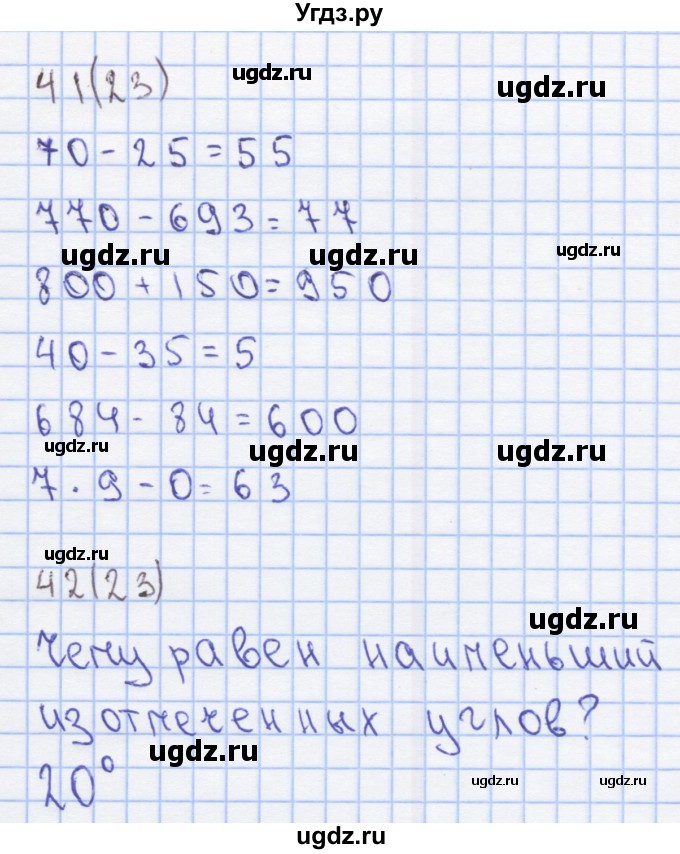 Угдз.ру
ugdz.ru
41(23)
ugdz.ru
70-25=55
770-693=77
ugdz.ru
ugdz.ru
ugdz.ru
800+150=950
40-35=5
684-84=600
ugdz.ru
ugdz.ru
ugdz.ru
7·9-0=63
ugdz.ru
42(23)
ugdz.ru
чему равен наименьший
из отмеченных углов?
ugdz.ru
20°
ugdz.ru
ugdz.ru
ugdz.ru